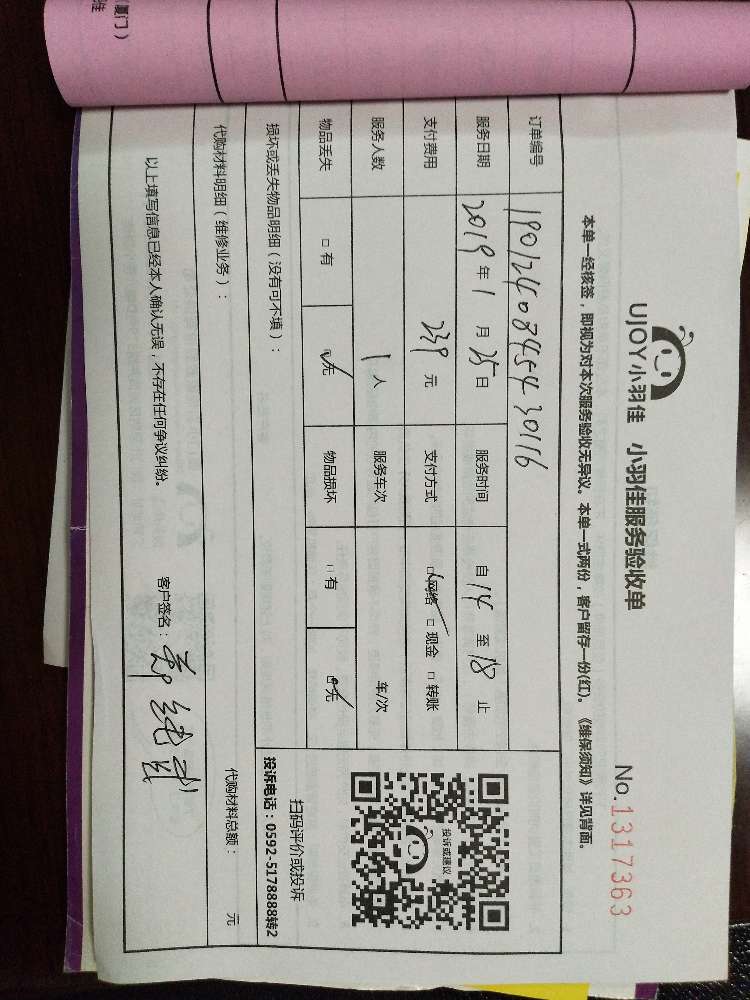 （厦门）
UJOY小羽佳 小羽佳服务验收单
No.1317363
本单一经核签，即视为对本次服务验收无异议。本单一式两份，客户留存一份(红)。《维保须知》详见背面。
订单编号 1901240845430116
服务日期 2019年1月25日 服务时间 自14至18止
支付费用 239元 支付方式 □网络 □现金 □转账
服务人数 1人 服务车次 车/次
物品丢失 □有 □无 物品损坏 □有 □无
投诉或建议
扫码评价或投诉
投诉电话：0592-5178888转2
损坏或丢失物品明细（没有可不填）：
代购材料明细（维修业务）： 代购材料总额： 元
以上填写信息已经本人确认无误，不存在任何争议纠纷。 客户签名：